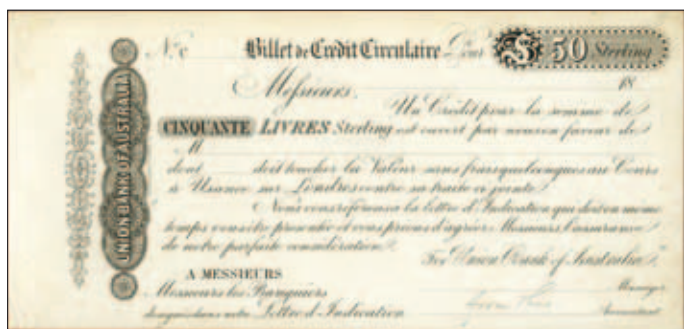 UNION BANK OF AUSTRALIA
No. Billet de Crédit Circulaire Pour £ 50 Sterling
Messieurs, 18
Un Crédit pour la somme de
CINQUANTE LIVRES Sterling est ouvert par nous en faveur de
M
dont doit toucher la Valeur sans frais quelconques au Cours
à Usance sur Londres contre sa traite ci jointe.
Nous vous référons à la lettre d'Indication qui doit en même
temps vous être presentée et vous prions d'agréer Messieurs, l'assurance
de notre parfaite considération.
For Union Bank of Australia
A MESSIEURS
Messieurs les Banquiers Manager
designés dans notre Lettre d'Indication Accountant